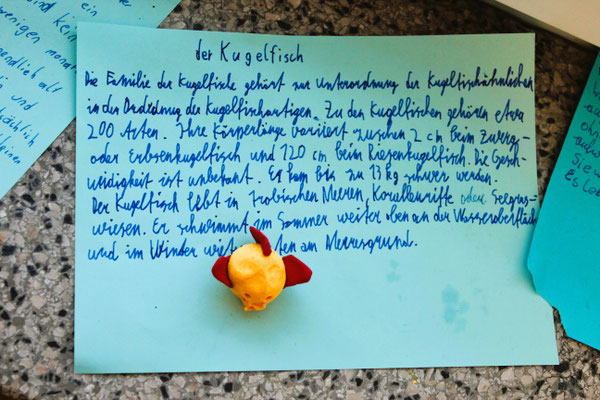 der Kugelfisch
Die Familie der Kugelfische gehört zur Unterordnung der Kugelfischähnlichen
in der Ordnung der Kugelfischartigen. Zu den Kugelfischen gehören etwa
200 Arten. Ihre Körperlänge variiert zwischen 2 cm beim Zwerg-
oder Erbsenkugelfisch und 120 cm beim Riesenkugelfisch. Die Gesch-
windigkeit ist unbekant. Er kann bis zu 13 kg schwer werden.
Der Kugelfisch lebt in trobischen Meeren, Korallenriffe oder Seegras-
wiesen. Er schwimmt im Sommer weiter oben an der Wasseroberfläche
und im Winter am Meeresgrund.
ein
wenigen
und